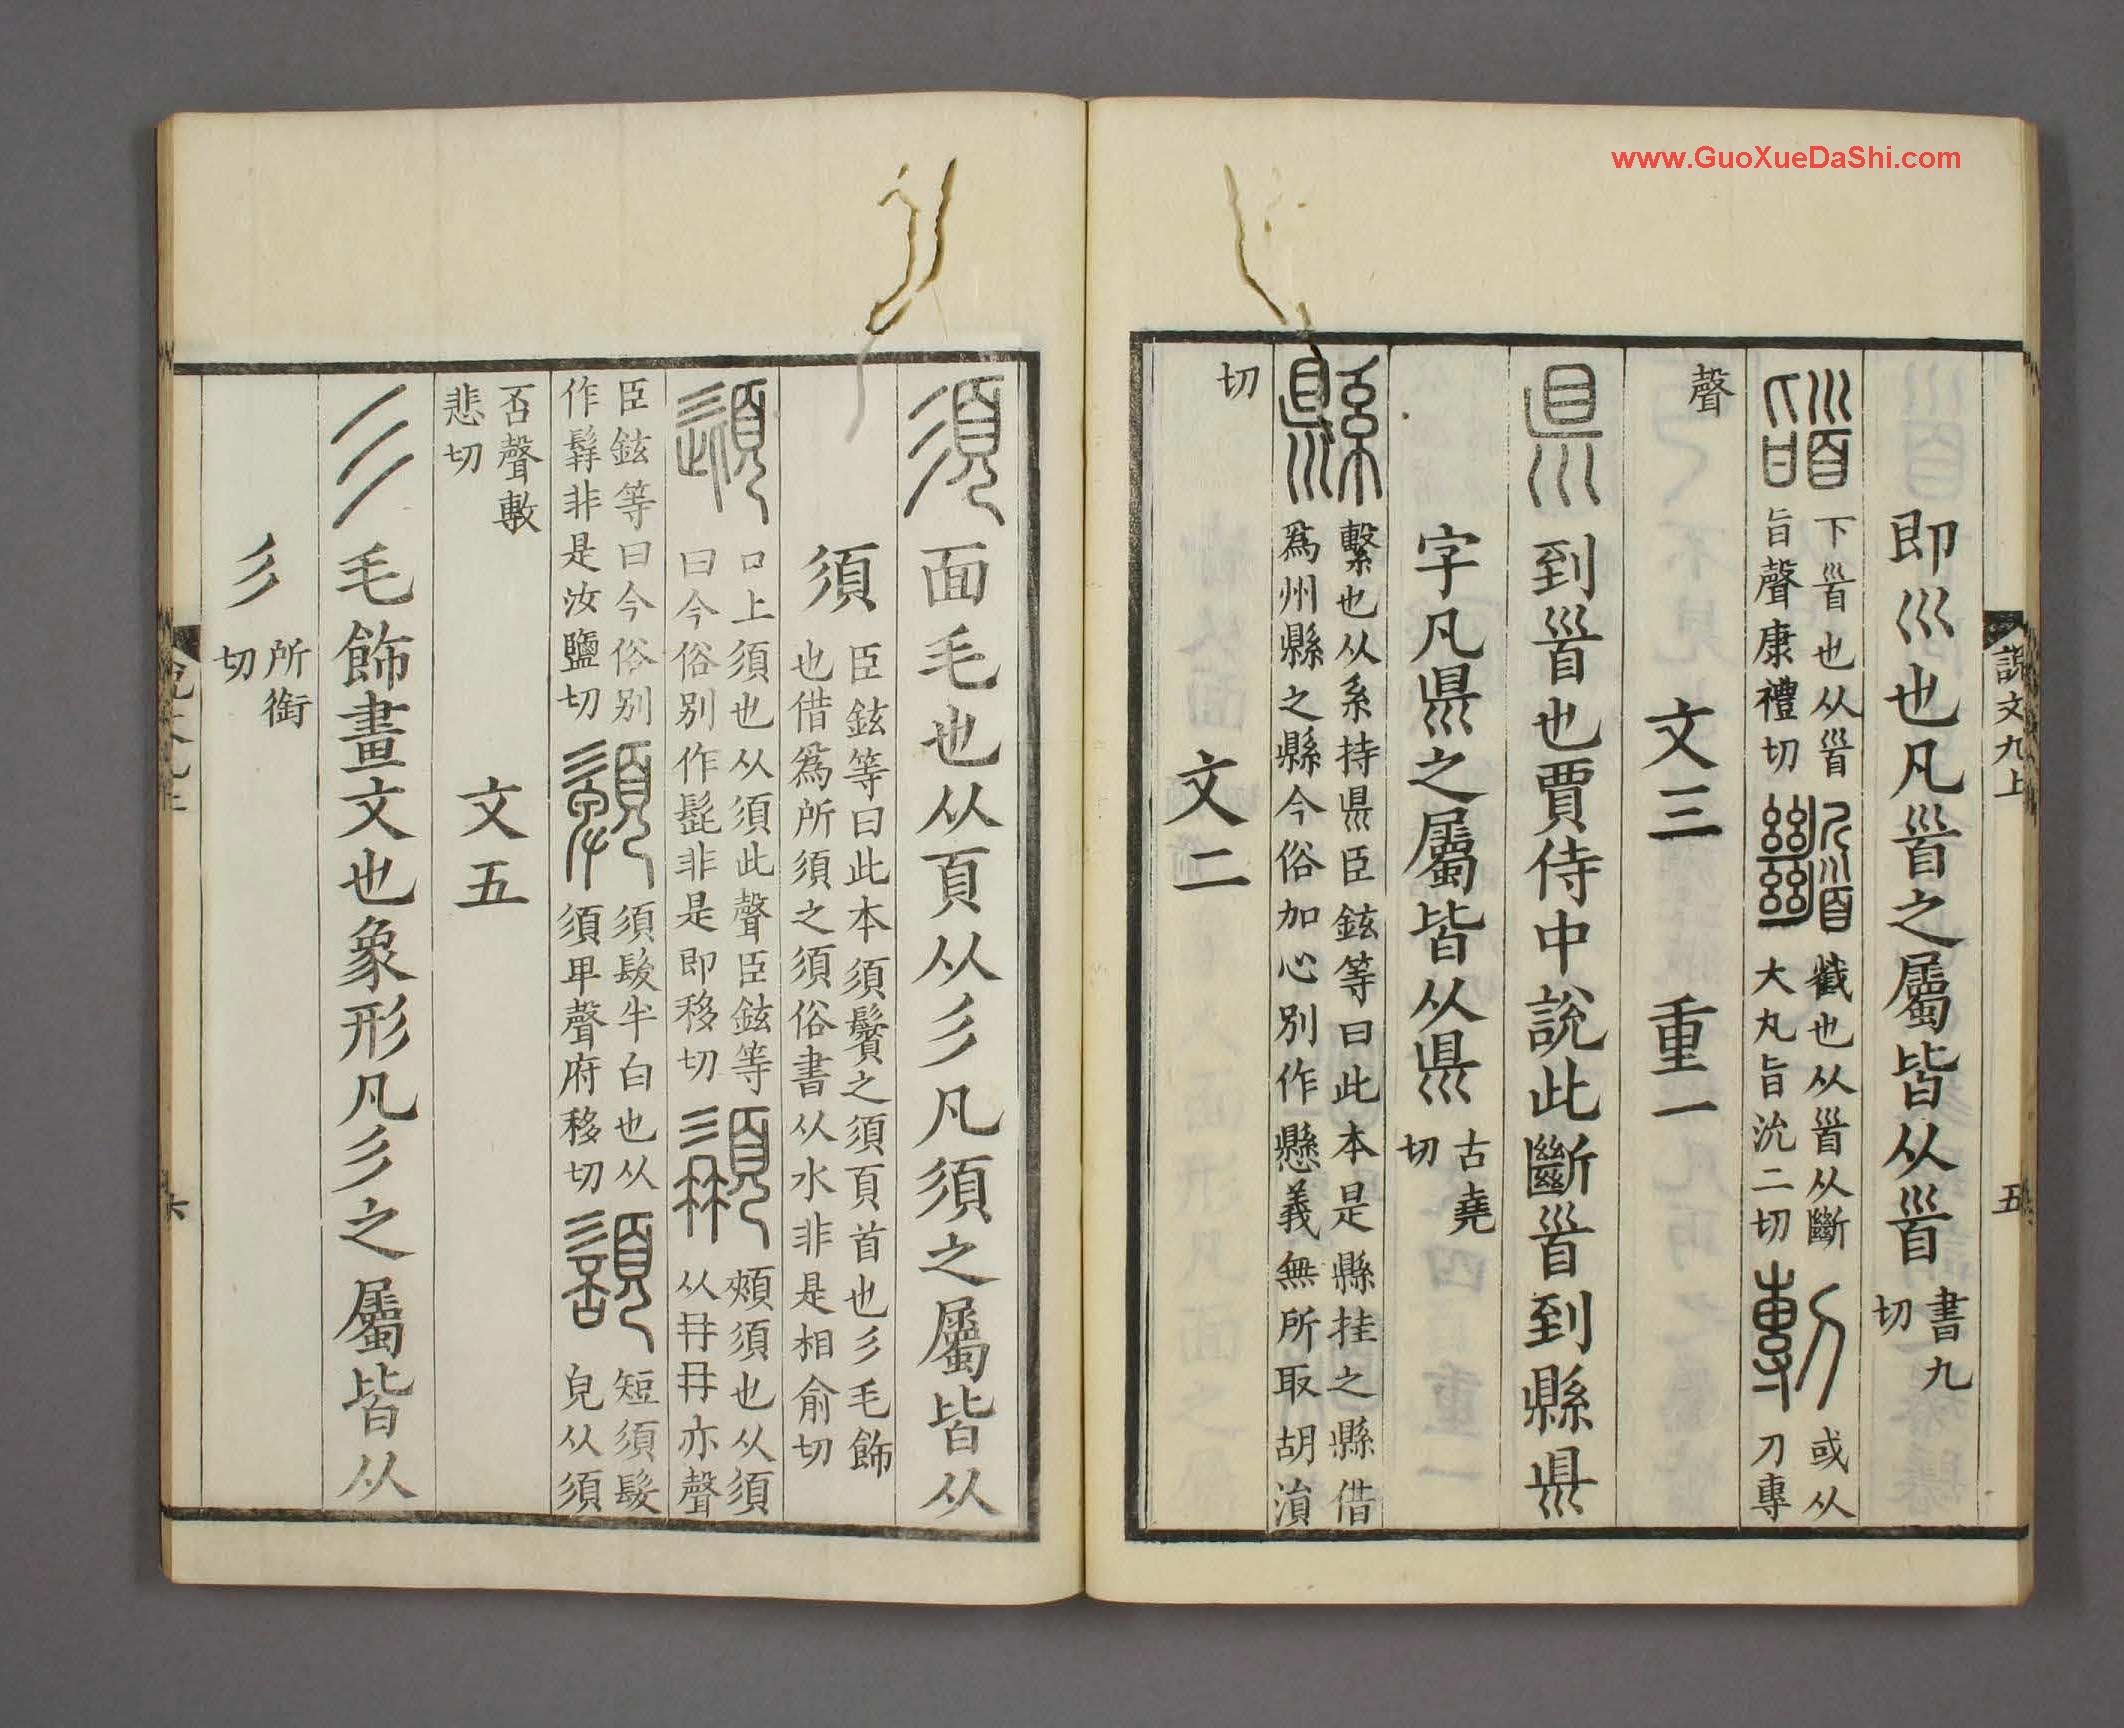 說文九上 五
即巛也凡𩠐之屬皆从𩠐書九切
䭫下𩠐也从𩠐旨聲康禮切𩠹截也从𩠐从斷大丸旨沇二切剸或从刀專
聲 文三 重一
県到𩠐也賈侍中說此斷𩠐到縣県
字凡県之屬皆从県古堯切
縣繫也从系持県臣鉉等曰此本是縣挂之縣借爲州縣之縣今俗加心別作懸義無所取胡涓
切 文二
須面毛也从頁从彡凡須之屬皆从
須臣鉉等曰此本須鬢之須頁首也彡毛飾也借爲所須之須俗書从水非是相俞切
頾口上須也从須此聲臣鉉等曰今俗別作髭非是即移切䫇頰須也从須从冄冄亦聲
臣鉉等曰今俗別作髥非是汝鹽切䫌須髮半白也从須卑聲府移切䫠短須髮皃从須
否聲敷悲切 文五
彡毛飾畫文也象形凡彡之屬皆从
彡所銜切
說文九上 六
www.GuoXueDaShi.com